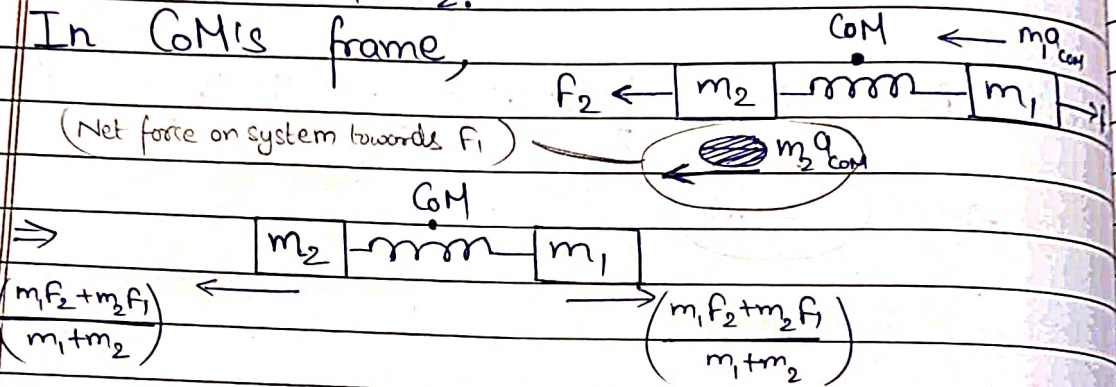 In CoM's frame,
CoM ← m₁a_COM
F₂ ← m₂ m₁
(Net force on system towards F₁) m₂a_COM
CoM
⇒ m₂ m₁
(m₁F₂+m₂F₁ / m₁+m₂) (m₁F₂+m₂F₁ / m₁+m₂)